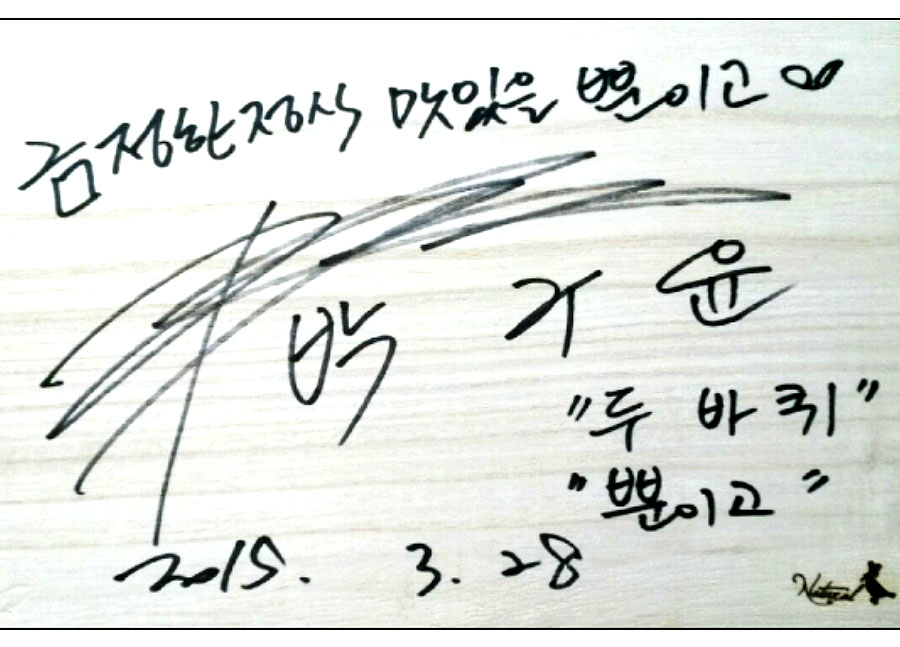 금정한정식 맛있을 뿐이고♡
박 구 윤
"두 바퀴"
"뿐이고"
2015. 3. 28
Natural